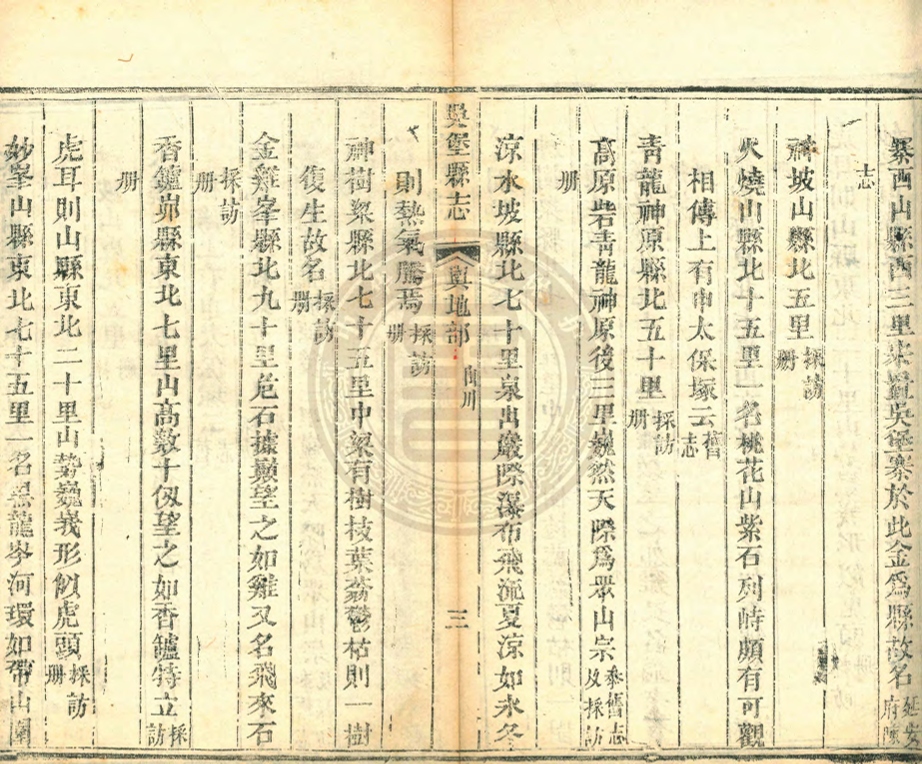 寨西山縣西三里宋置吳堡寨於此金爲縣故名延安府
志
禱坡山縣北五里採訪册
火燒山縣北十五里一名桃花山紫石列峙頗有可觀
相傳上有申太保塚云舊志
青龍神原縣北五十里採訪册
高原砦青龍神原後三里巍然天際爲眾山宗叅舊志及採訪
册
凉水坡縣北七十里泉出巖際瀑布飛流夏凉如氷冬
吳堡縣志 輿地部 山川 三
則熱氣騰焉採訪册
神樹梁縣北七十五里中梁有樹枝葉蓊鬱枯則一樹
復生故名採訪册
金雞峯縣北九十里危石據巔望之如雞又名飛來石
採訪册
香鑪峁縣東北七里山高數十仭望之如香鑪特立採訪
册
虎耳則山縣東北二十里山勢巍峩形似虎頭採訪册
妙峯山縣東北七十五里一名黑龍岑河環如帶山圍